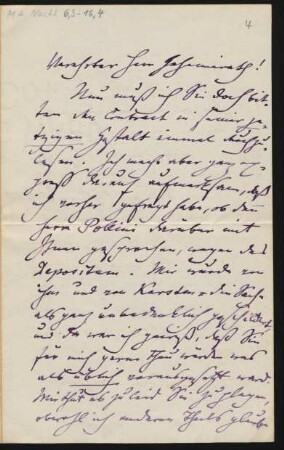 Ms Nachl 6,3-16,4
4
Verehrter Herr Geheimrath!
Nun muß ich Sie doch bit-
ten den Contract in seiner je-
tzigen Gestalt einmal durchzu-
lesen. Ich mache aber ganz ex-
preß darauf aufmerksam, daß
ich vorher gefragt habe, ob der
Herr Pollini darüber mit
Ihnen gesprochen, wegen des
Depositum. Mir wurde von
ihm und von Karsten die Sache
als ganz unbedenklich geschildert,
und da war ich gewiß, daß Sie
für mich gerne thun würden was
als üblich vorausgesetzt ward.
Mir thut es zu leid Sie zu plagen,
obwohl ich anderen Theils glaube